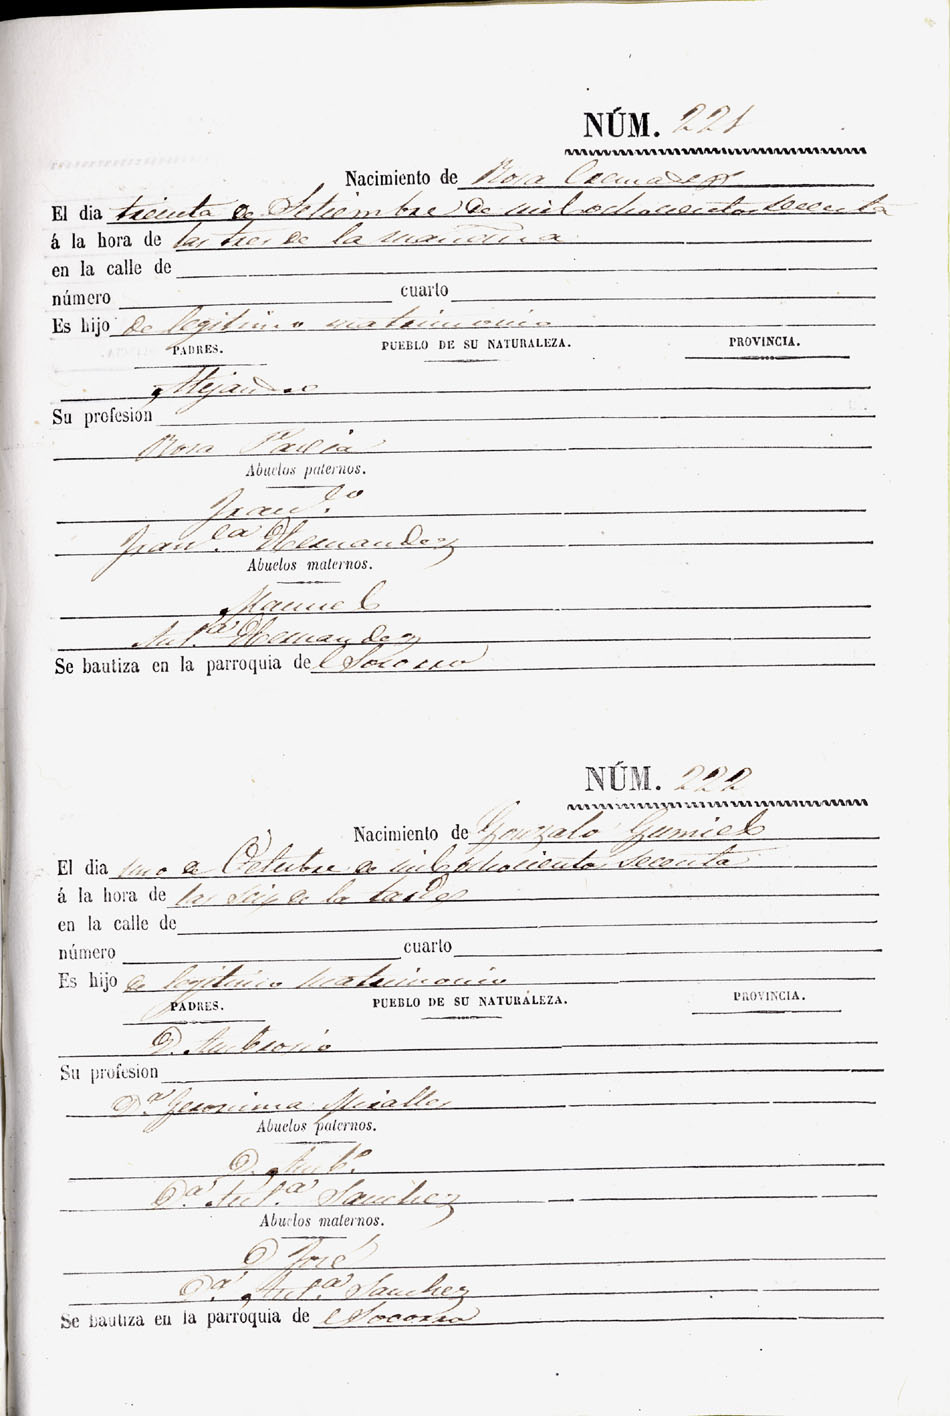 NÚM. 221
Nacimiento de Rosa Cremades
El dia treinta de Setiembre de mil ochocientos secenta
á la hora de las tres de la mañana
en la calle de
número cuarto
Es hijo de legitimo matrimonio
PADRES. PUEBLO DE SU NATURALEZA. PROVINCIA.
Alejandro
Su profesion
Rosa Garcia
Abuelos paternos.
Fran.co
Fran.ca Hernandez
Abuelos maternos.
Manuel
Ant.a Hernandez
Se bautiza en la parroquia de Socorro
NÚM. 222
Nacimiento de Gonzalo Gumiel
El dia uno de Octubre de mil ochocientos secenta
á la hora de las seis de la tarde
en la calle de
número cuarto
Es hijo de legitimo matrimonio
PADRES. PUEBLO DE SU NATURALEZA. PROVINCIA.
D. Ambrosio
Su profesion
D.a Geronima Miralles
Abuelos paternos.
D. Amb.o
D.a Ant.a Sanchez
Abuelos maternos.
D. José
D.a Ant.a Sanchez
Se bautiza en la parroquia de Socorro